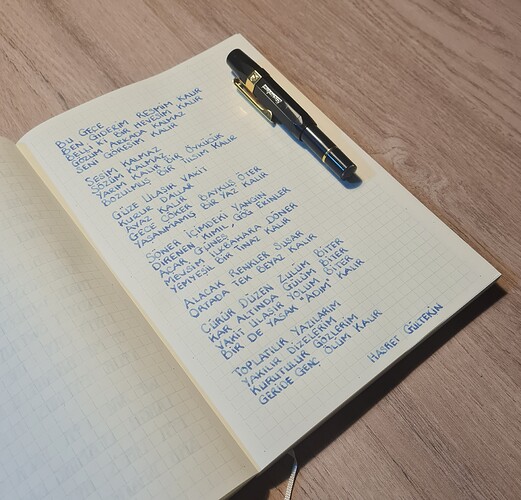 BU GECE
BEN GİDERİM RESMİM KALIR
BELLİ Kİ BİR HEVESİM KALIR
GÖZÜM ARKADA KALMAZ
SENİ GÖRESİM KALIR
SESİM KALMAZ
SÖZÜM KALMAZ
YARIM KALIR BİR ÖYKÜCÜK
BOZULMUŞ BİR TILSIM KALIR
GÜZE ULAŞIR VAKİT
KURUR DALLAR
AYAZ KALIR
GECE ÇÖKER BAYKUŞ ÖTER
YAŞANMAMIŞ BİR YAZ KALIR
SÖNER İÇİMDEKİ YANGIN
DİRENEN KIMIL, GÖĞ EKİNLER
AÇAR GÜNEŞ
MEVSİM İLKBAHARA DÖNER
YEMYEŞİL BİR TINAZ KALIR
ALACAK RENKLER SUSAR
ORTADA TEK BEYAZ KALIR
ÇÜRÜK DÜZEN ZULÜM BİTER
KAR ALTINDA GÜLÜM BİTER
VAKİT ULAŞIR YOLUM BİTER
BİR DE YASAK "ADIM" KALIR
TOPLATILIR YAZILARIM
YAKILIR DİZELERİM
KURUTULUR GÖZLERİM
GERİDE GENÇ ÖLÜM KALIR
HASRET GÜLTEKİN